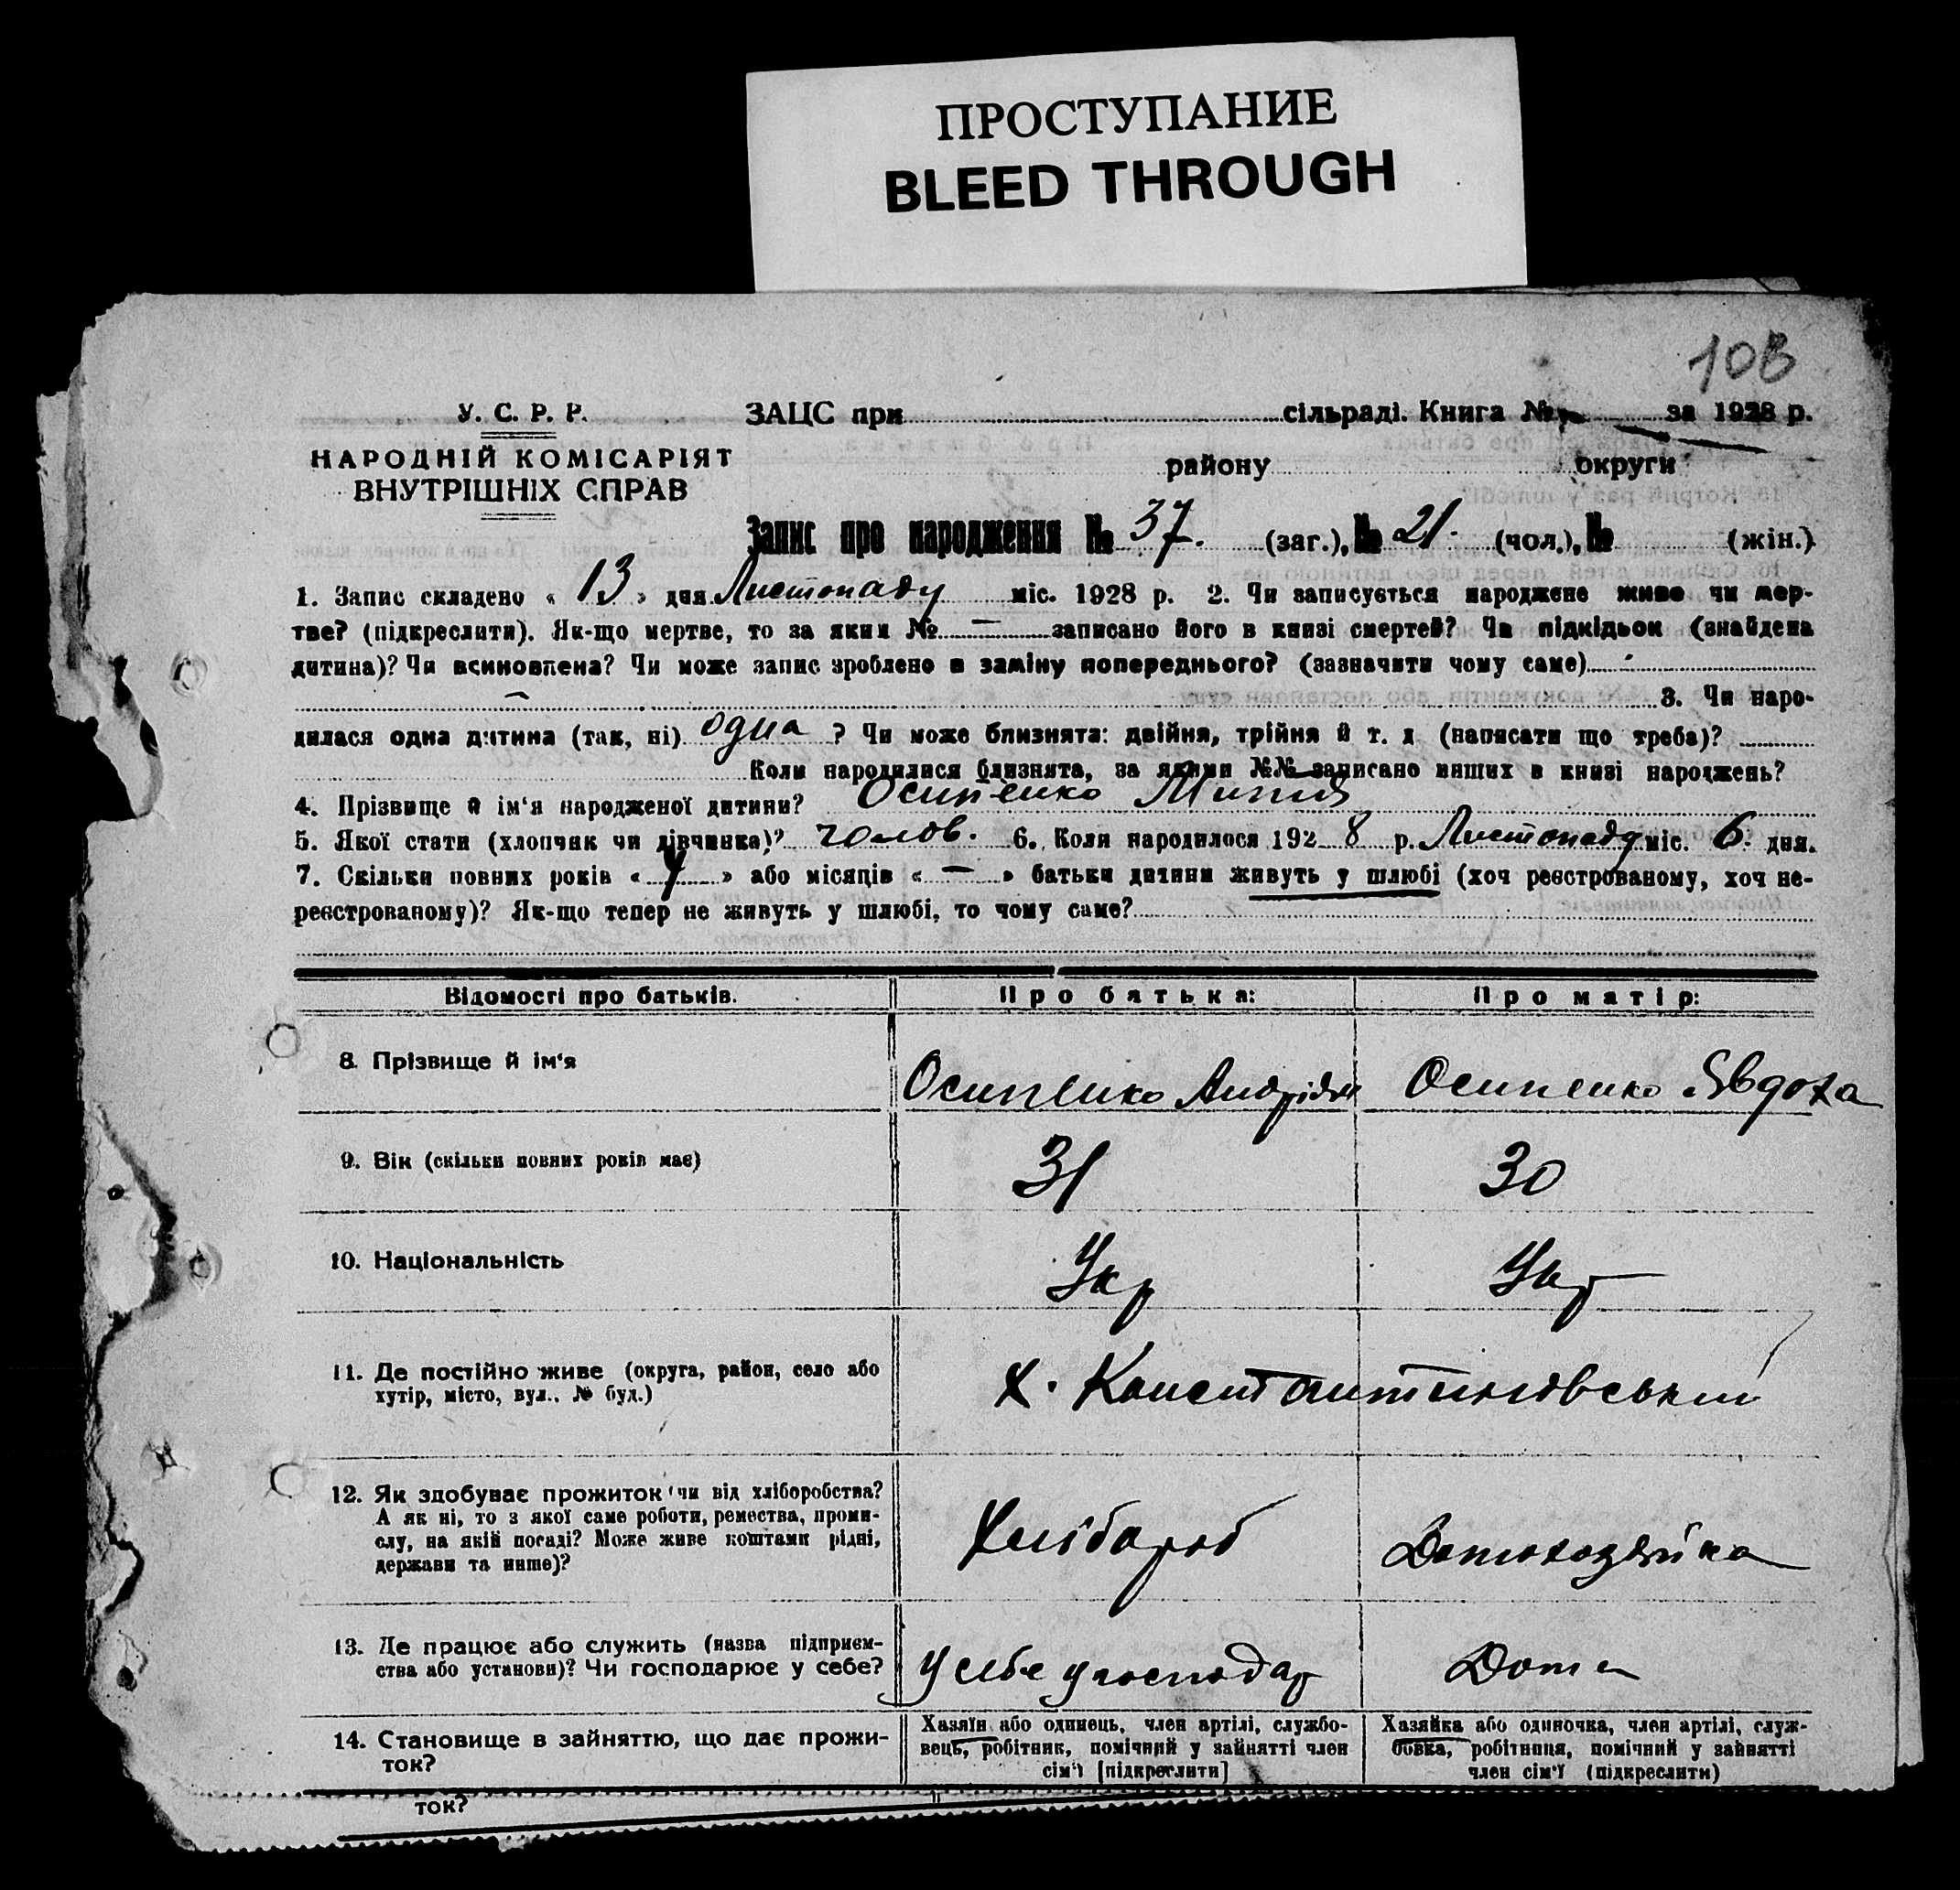 ПРОСТУПАНИЕ
BLEED THROUGH
У. С. Р. Р.
ЗАЦС при сільраді. Книга № за 1928 р.
НАРОДНІЙ КОМІСАРІЯТ
району округи
ВНУТРІШНІХ СПРАВ
Запис про народження № 37. (заг.), № 21. (чол.), № (жін.)
1. Запис складено « 13 » дня Листопаду міс. 1928 р. 2. Чи записується народжене живе чи мер-
тве? (підкреслити). Як-що мертве, то за яким № — записано його в книзі смертей? Чи підкідьок (знайдена
дитина)? Чи всиновлена? Чи може запис зроблено в заміну попереднього? (зазначити чому саме)
3. Чи наро-
дилася одна дитина (так, ні) одна ? Чи може близнята: двійня, трійня й т. д (написати що треба)?
Коли народилися близнята, за якими №№ записано инших в книзі народжень?
4. Прізвище й ім'я народженої дитини? Осипенко
5. Якої стати (хлопчик чи дівчинка)? чолов. 6. Коли народилося 1928 р. Листопаду міс. 6. дня.
7. Скільки повних років « 4 » або місяців « — » батьки дитини живуть у шлюбі (хоч реєстрованому, хоч не-
реєстрованому)? Як-що тепер не живуть у шлюбі, то чому саме?
Відомості про батьків. Про батька: Про матір:
8. Прізвище й ім'я Осипенко Андріян Осипенко Явдоха
9. Вік (скільки повних років має) 31 30
10. Національність Укр Укр
11. Де постійно живе (округа, район, село або
хутір, місто, вул., № буд.)
х. Константиновський
12. Як здобуває прожиток чи від хліборобства?
А як ні, то з якої саме роботи, ремества, проми-
слу, на якій посаді? Може живе коштами рідні,
держави та инше)?
Хлібороб Домохозяйка
13. Де працює або служить (назва підприєм-
ства або установи)? Чи господарює у себе?
У себе у господар Дома
14. Становище в зайняттю, що дає прожи-
ток?
Хазяїн або одинець, член артілі, службо-
вець, робітник, помічний у зайнятті член
сім'ї [підкреслити]
Хазяйка або одиночка, член артілі, служ-
бовка, робітниця, помічний у зайнятті
член сім'ї (підкреслити)
ток?